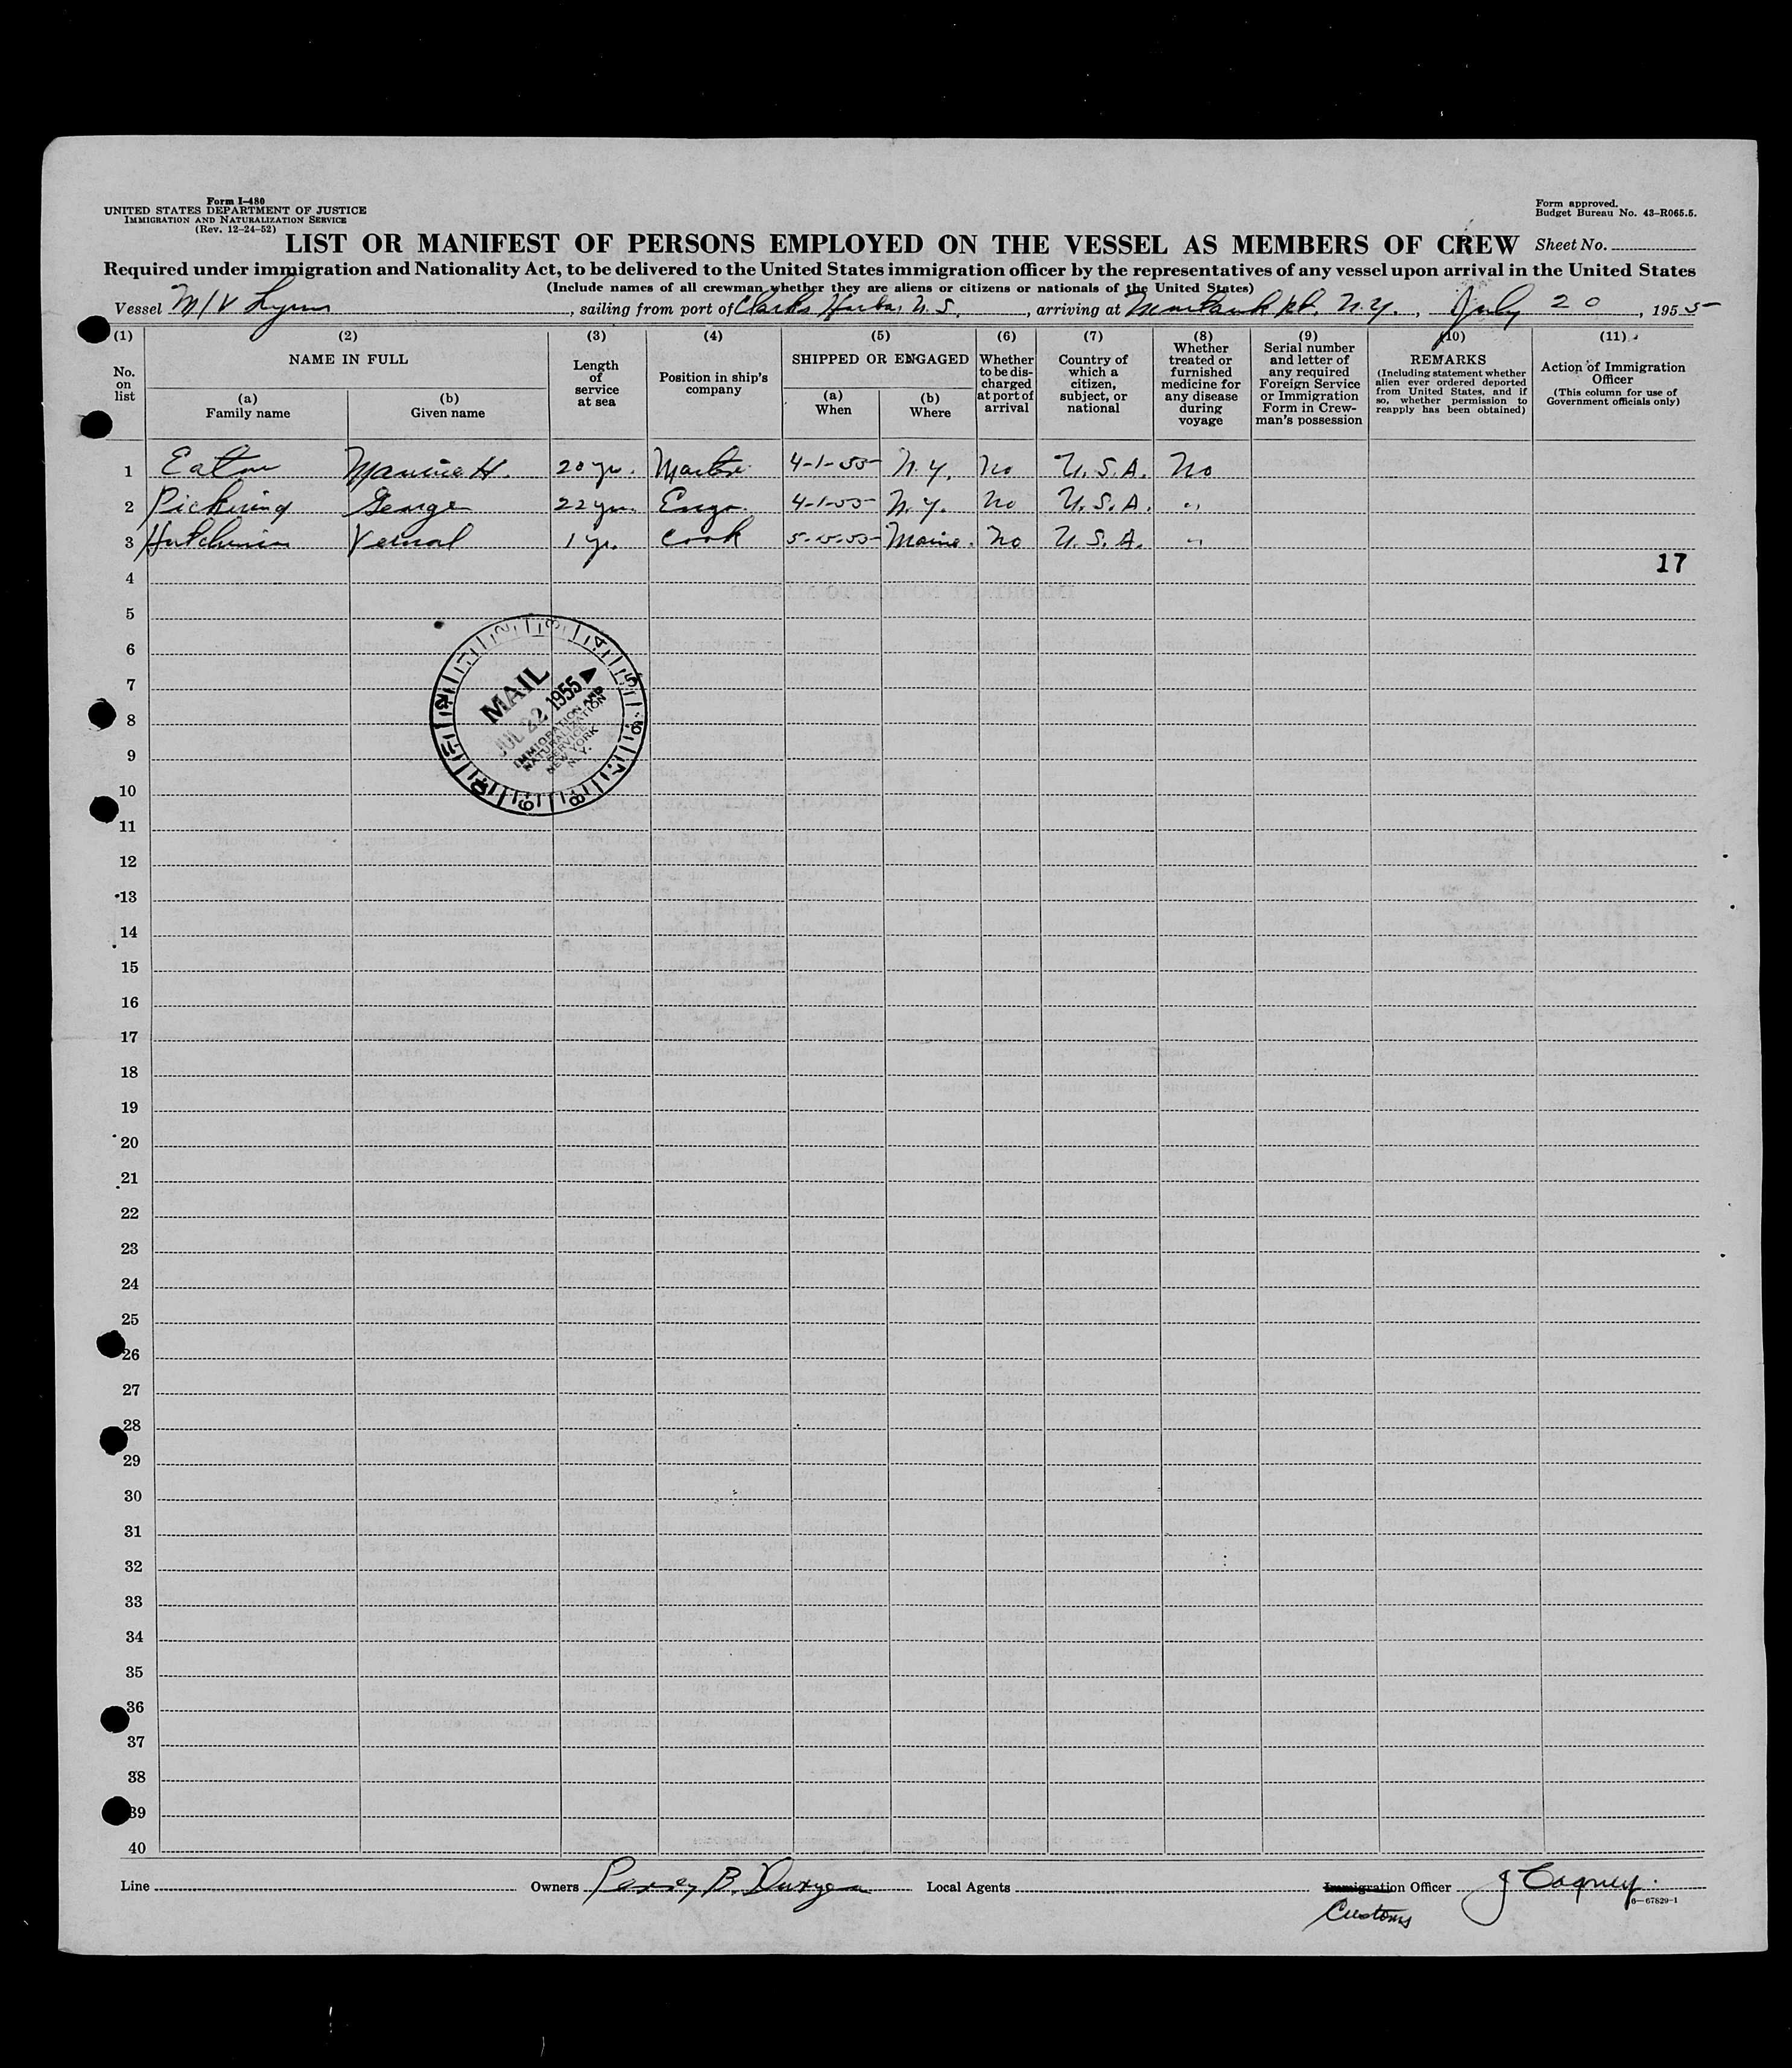 Form I-480
UNITED STATES DEPARTMENT OF JUSTICE
IMMIGRATION AND NATURALIZATION SERVICE
(Rev. 12-24-52)
Form approved.
Budget Bureau No. 43-R065.5.
LIST OR MANIFEST OF PERSONS EMPLOYED ON THE VESSEL AS MEMBERS OF CREW Sheet No.
Required under immigration and Nationality Act, to be delivered to the United States immigration officer by the representatives of any vessel upon arrival in the United States
(Include names of all crewman whether they are aliens or citizens or nationals of the United States)
Vessel M/V Lynn, sailing from port of Clarks Harbor N.S., arriving at Montauk Pt. N.Y., July 20, 1955
(1) No. on list
(2) NAME IN FULL
(a) Family name
(b) Given name
(3) Length of service at sea
(4) Position in ship's company
(5) SHIPPED OR ENGAGED
(a) When
(b) Where
(6) Whether to be discharged at port of arrival
(7) Country of which a citizen, subject, or national
(8) Whether treated or furnished medicine for any disease during voyage
(9) Serial number and letter of any required Foreign Service or Immigration Form in Crewman's possession
(10) REMARKS (Including statement whether alien ever ordered deported from United States, and if so, whether permission to reapply has been obtained)
(11) Action of Immigration Officer (This column for use of Government officials only)
1 Eaton Maurice H. 20 yr. Master 4-1-55 N.Y. No U.S.A. No
2 Pickering George 22 yrs. Engr. 4-1-55 N.Y. No U.S.A. "
3 Hutchinson Vernal 1 yr. Cook Maine. No U.S.A. "
17
4
5
6
7
8
9
10
11
12
13
14
15
16
17
18
19
20
21
22
23
24
25
26
27
28
29
30
31
32
33
34
35
36
37
38
39
40
MAIL
JUL 22 1955
IMMIGRATION AND
NATURALIZATION
SERVICE
NEW YORK
N.Y.
Line Owners Percy B. Duryea Local Agents Immigration Officer J Cagney.
Customs
16-67829-1